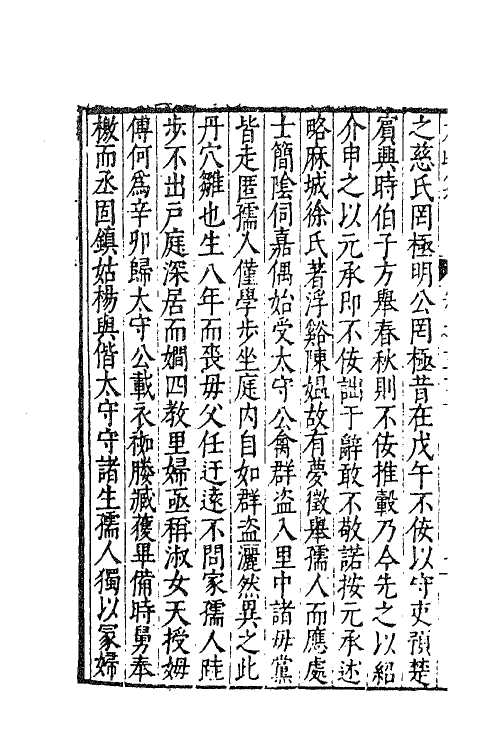 之慈氏罔極明公罔極昔在戊午不佞以守吏預楚
賓興時伯子方舉春秋則不佞推轂乃今先之以紹
介申之以元承即不佞詘于辭敢不敬諾按元承述
略麻城徐氏著浮谿陳媪故有夢徵舉孺人而應處
士簡陰伺嘉偶始受太守公禽群盜入里中諸毋黨
皆走匿孺人僅學步坐庭內自如群盜灑然異之此
丹穴雛也生八年而喪毋父任迂遠不問家孺人跬
步不出戶庭深居而嫺四教里婦亟稱淑女天授姆
傅何為辛卯歸太守公載衣枷媵臧獲畢備時舅奉
檄而丞固鎮姑楊與偕太守守諸生孺人獨以冢婦